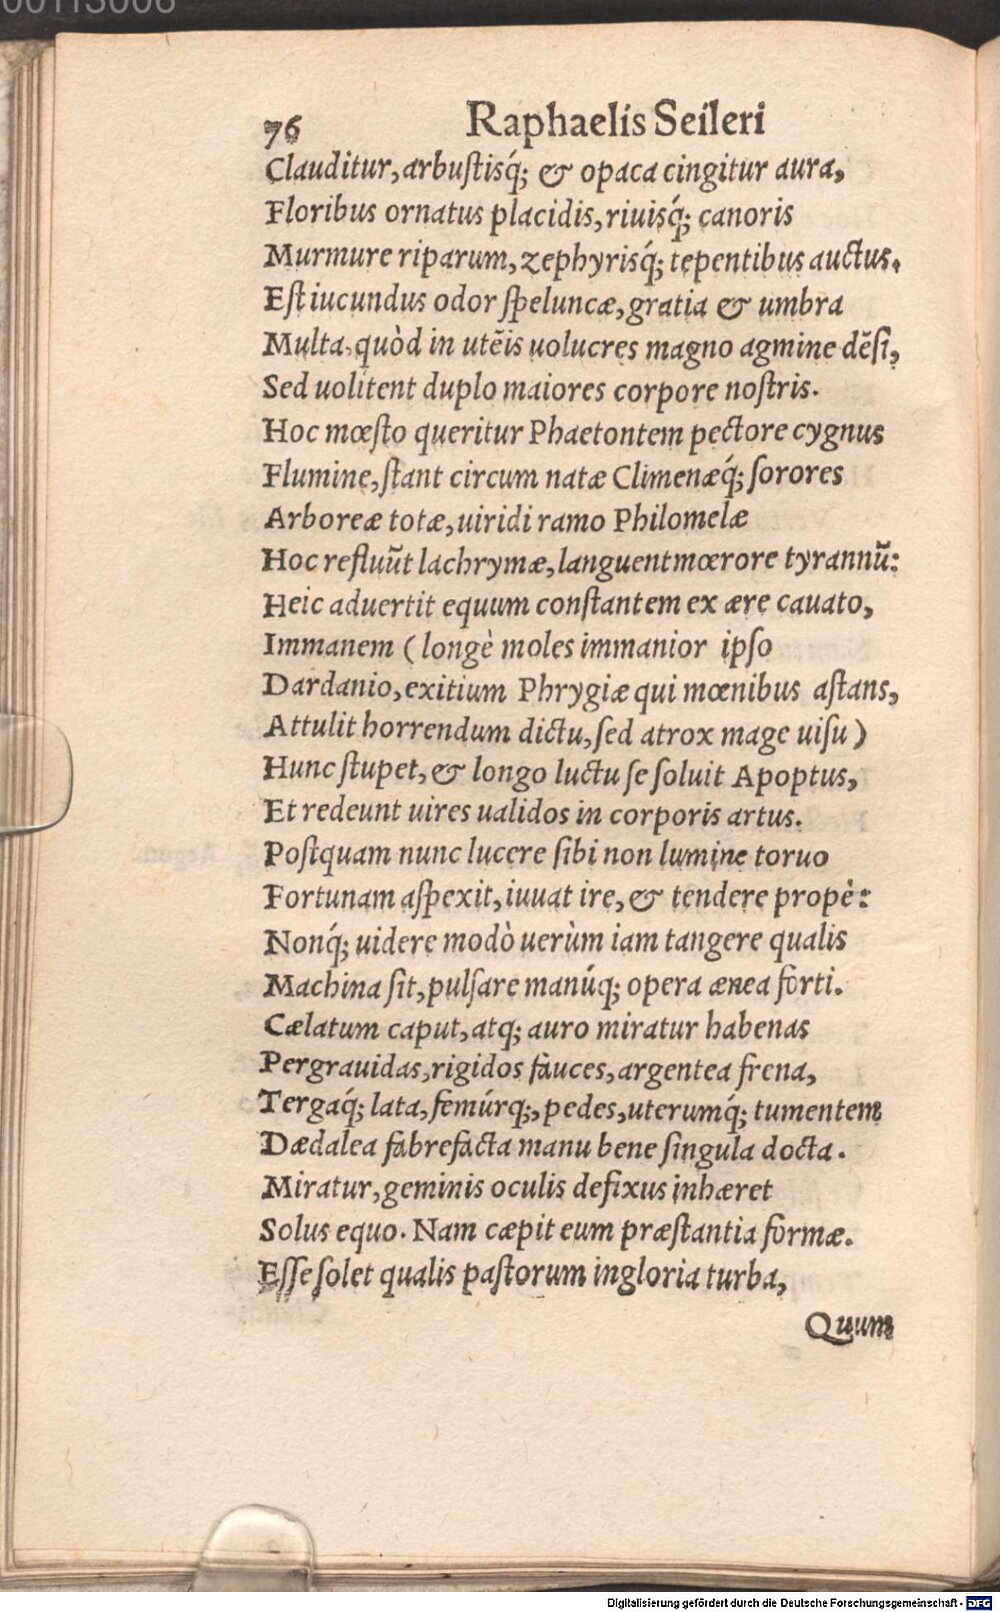 00113008
76 Raphaelis Seileri
Clauditur, arbustisq́; & opaca cingitur aura,
Floribus ornatus placidis, riuisq́; canoris
Murmure riparum, zephyrisq́; tepentibus auctus.
Est iucundus odor speluncæ, gratia & umbra
Multa, quòd in utẽis uolucres magno agmine dẽsi,
Sed uolitent duplo maiores corpore nostris.
Hoc mœsto queritur Phaetontem pectore cygnus
Flumine, stant circum natæ Climenæq́; sorores
Arboreæ totæ, uiridi ramo Philomelæ
Hoc refluũt lachrymæ, languent mœrore tyrannũ:
Heic aduertit equum constantem ex ære cauato,
Immanem (longè moles immanior ipso
Dardanio, exitium Phrygiæ qui mœnibus astans,
Attulit horrendum dictu, sed atrox mage uisu)
Hunc stupet, & longo luctu se soluit Apoptus,
Et redeunt uires ualidos in corporis artus.
Postquam nunc lucere sibi non lumine toruo
Fortunam aspexit, iuuat ire, & tendere propè:
Nonq́; uidere modò uerùm iam tangere qualis
Machina sit, pulsare manúq; opera ænea forti.
Cælatum caput, atq; auro miratur habenas
Pergrauidas, rigidos fauces, argentea frena,
Tergaq́; lata, femúrq;, pedes, uterumq́; tumentem
Dædalea fabrefacta manu bene singula docta.
Miratur, geminis oculis defixus inhæret
Solus equo. Nam cæpit eum præstantia formæ.
Esse solet qualis pastorum ingloria turba,
Quum
Digitalisierung gefördert durch die Deutsche Forschungsgemeinschaft - DFG